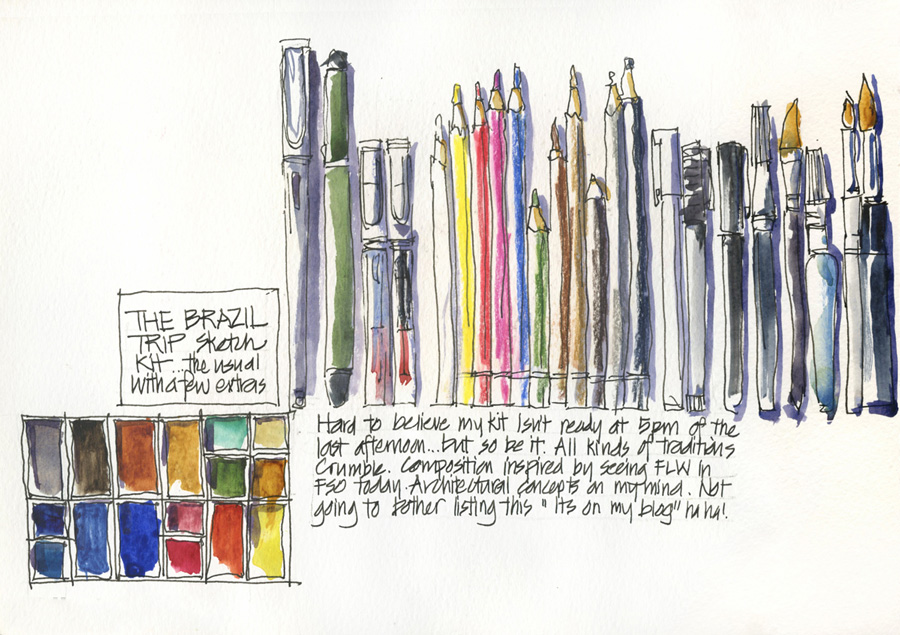 THE BRAZIL
TRIP Sketch
KIT...the usual
with a few extras
Hard to believe my kit isn't ready at 5pm of the
last afternoon...but so be it. All kinds of traditions
Crumble. Composition inspired by seeing FLW in
FSO today. Architectural concepts on my mind. Not
going to bother listing this "its on my blog" ha ha!